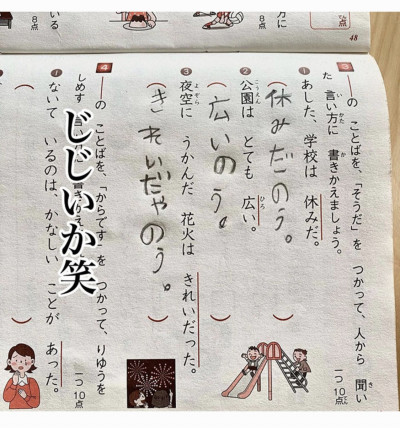 48
方に
8点
する
8点
3 ――の ことばを、「そうだ」を つかって、人から 聞い
た 言い方に 書きかえましょう。
一つ10点
① あした、学校は 休みだ。
休みだのう。
② 公園は とても 広い。
広いのう。
③ 夜空に うかんだ 花火は きれいだった。
きれいだゃのう。
4 ――の ことばを、「からです」を つかって、りゆうを
しめす
一つ10点
① ないて いるのは、かなしい ことが あった。
じじいか笑